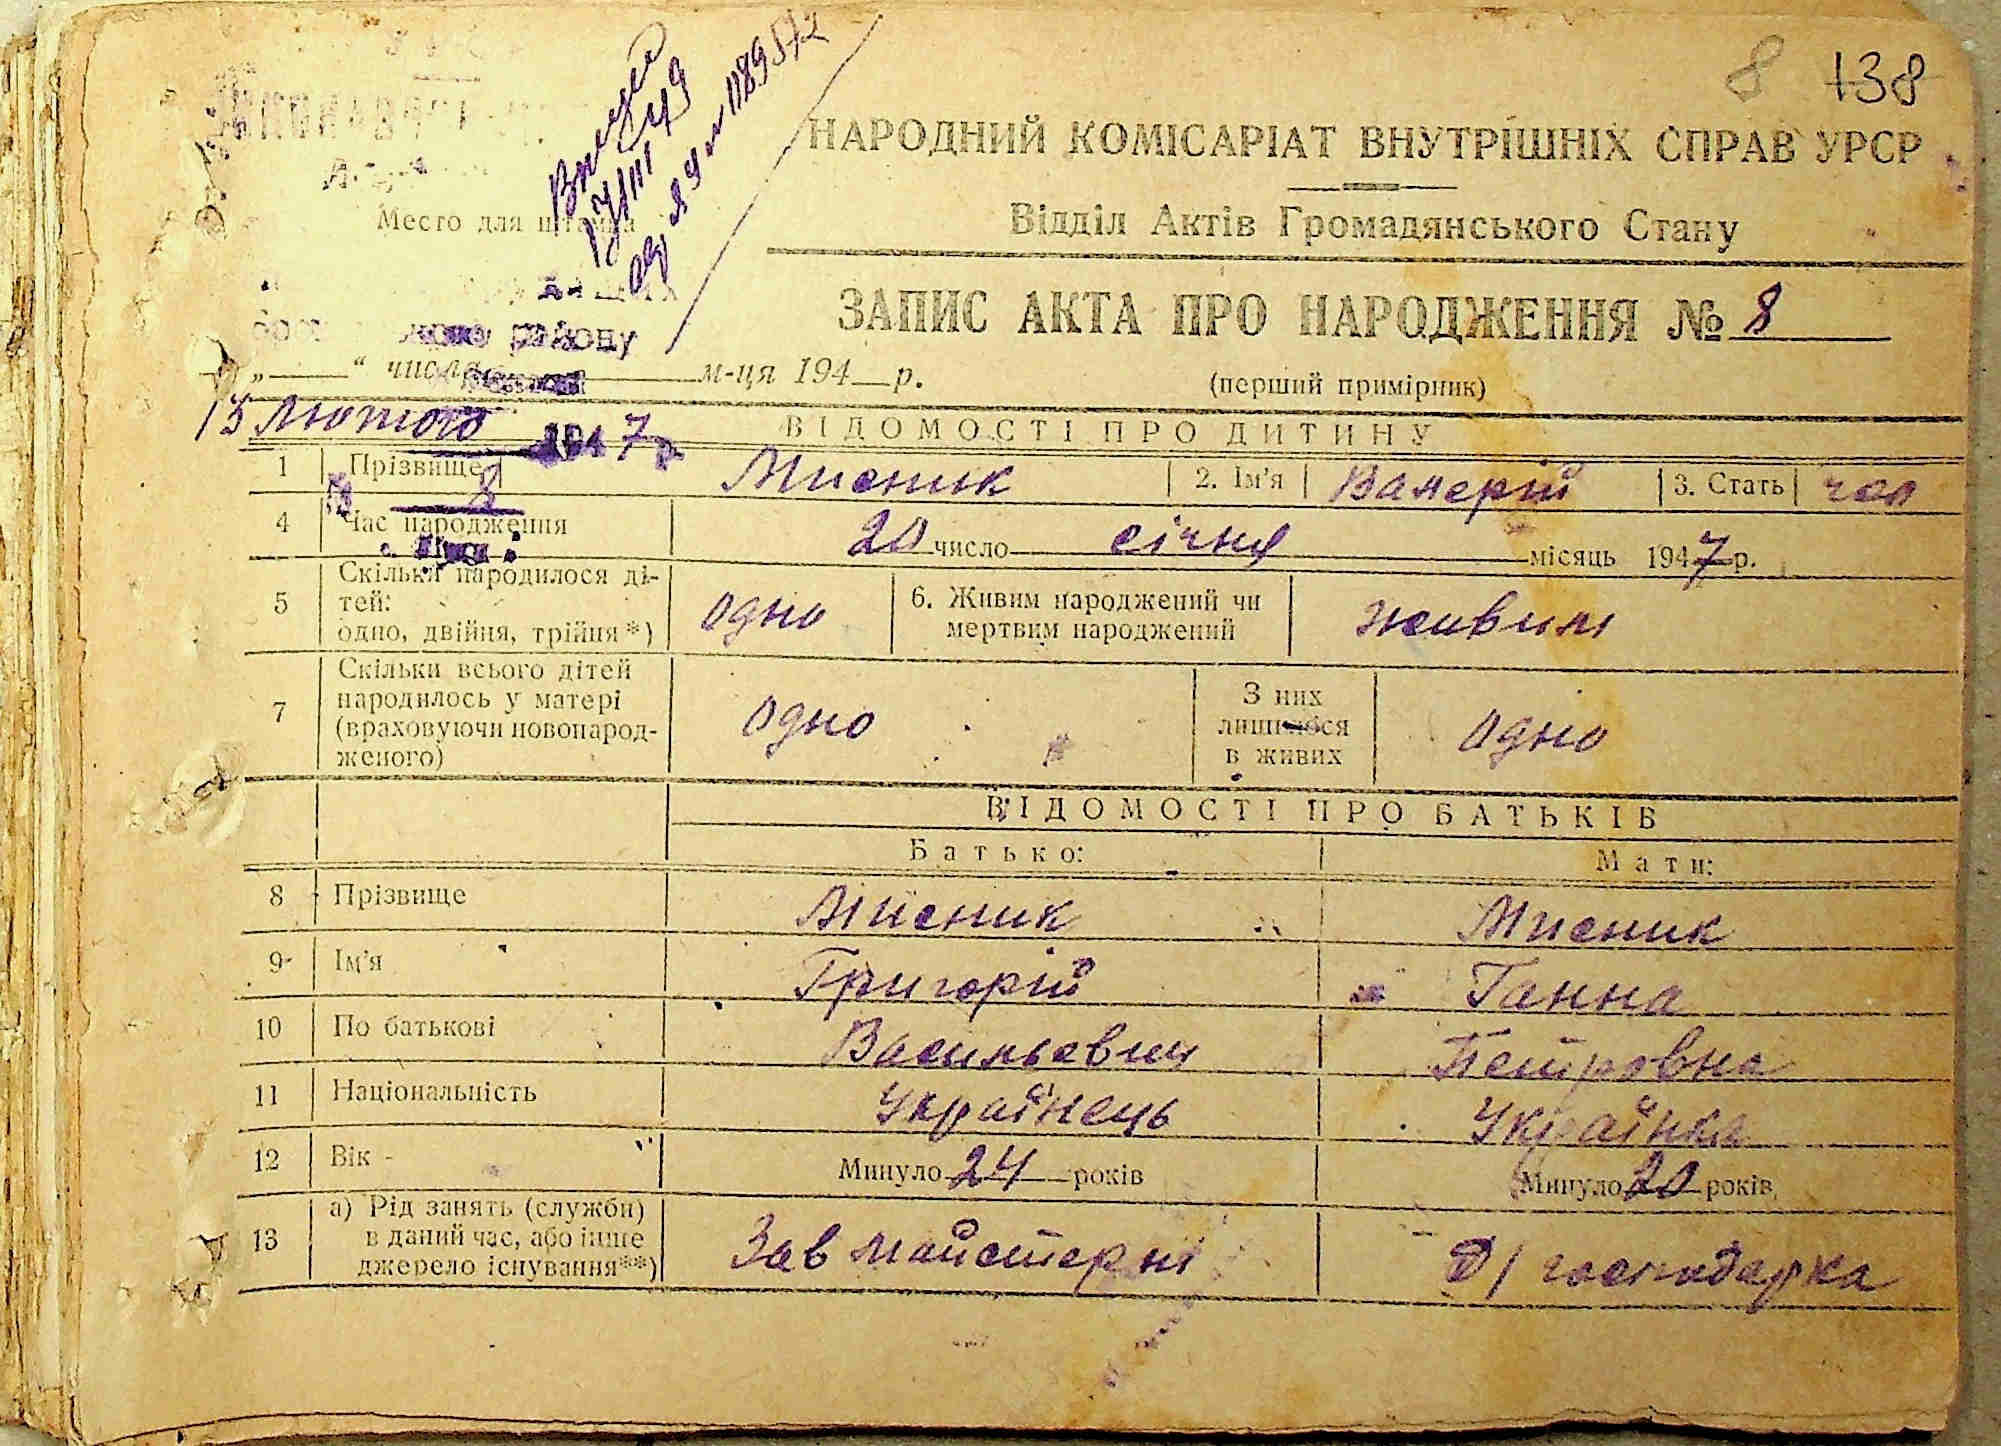 8 138
НАРОДНИЙ КОМІСАРІАТ ВНУТРІШНІХ СПРАВ УРСР
Відділ Актів Громадянського Стану
Место для штампа
17/III 49
ЗАПИС АКТА ПРО НАРОДЖЕННЯ № 8
(перший примірник)
району
„ “ числа м-ця 194 р.
15 Лютого 1947 р.
ВІДОМОСТІ ПРО ДИТИНУ
1 Прізвище Мисник 2. Ім'я Валерій 3. Стать чол
8
4 Час народження 20 число січня місяць 1947 р.
5 Скільки народилося ді-
тей:
одно, двійня, трійня*) одно 6. Живим народжений чи
мертвим народжений живим
7 Скільки всього дітей
народилось у матері
(враховуючи новонарод-
женого) одно З них
лишилося
в живих одно
ВІДОМОСТІ ПРО БАТЬКІВ
Батько: Мати:
8 Прізвище Мисник Мисник
9 Ім'я Григорій Ганна
10 По батькові Васильевич Петровна
11 Національність Українець Українка
12 Вік Минуло 24 років Минуло 20 років
13 а) Рід занять (служби)
в даний час, або інше
джерело існування**) Зав майстерні Д/господарка